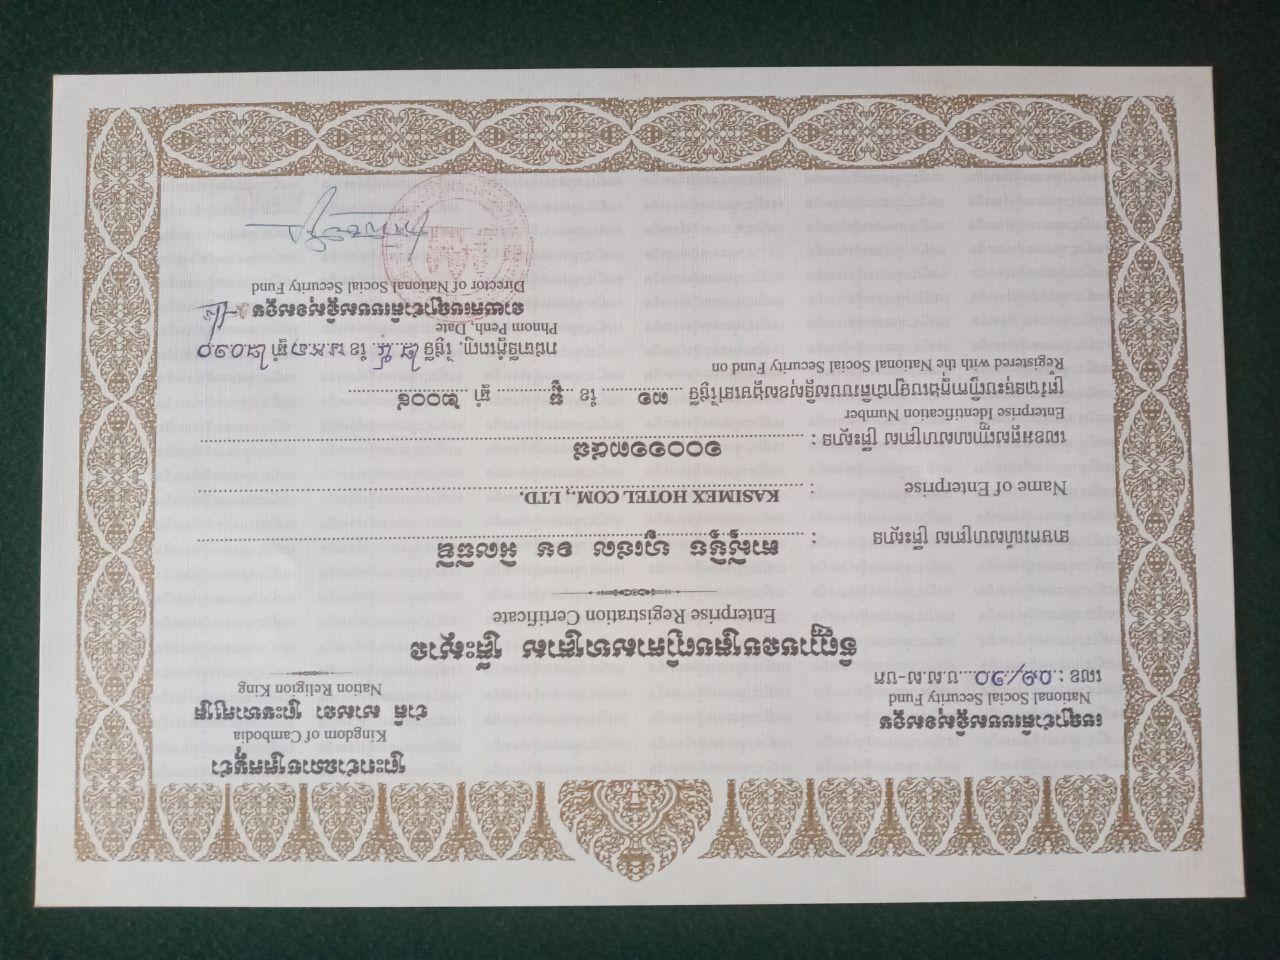 ព្រះរាជាណាចក្រកម្ពុជា
Kingdom of Cambodia
ជាតិ សាសនា ព្រះមហាក្សត្រ
Nation Religion King
បេឡាជាតិរបបសន្តិសុខសង្គម
National Social Security Fund
លេខ : ០១/១០ ប.ស.ស-បក
វិញ្ញាបនបត្របញ្ជិកាសហគ្រាស គ្រឹះស្ថាន
Enterprise Registration Certificate
នាមករណ៍សហគ្រាស គ្រឹះស្ថាន :
កាស៊ីម៉ិច ហូថែល ខម អិលធីឌី
Name of Enterprise : KASIMEX HOTEL COM., LTD.
លេខអត្តសញ្ញាណសហគ្រាស គ្រឹះស្ថាន : ១០០១១៣៥៨
Enterprise Identification Number
ត្រូវបានចុះបញ្ជីកាក្នុងបេឡាជាតិរបបសន្តិសុខសង្គមនៅថ្ងៃទី ៣១ ខែ ធ្នូ ឆ្នាំ ២០០៩
Registered with the National Social Security Fund on
រាជធានីភ្នំពេញ, ថ្ងៃទី ២៥ ខែ មករា ឆ្នាំ ២០១០
Phnom Penh, Date
នាយកបេឡាជាតិរបបសន្តិសុខសង្គម
Director of National Social Security Fund